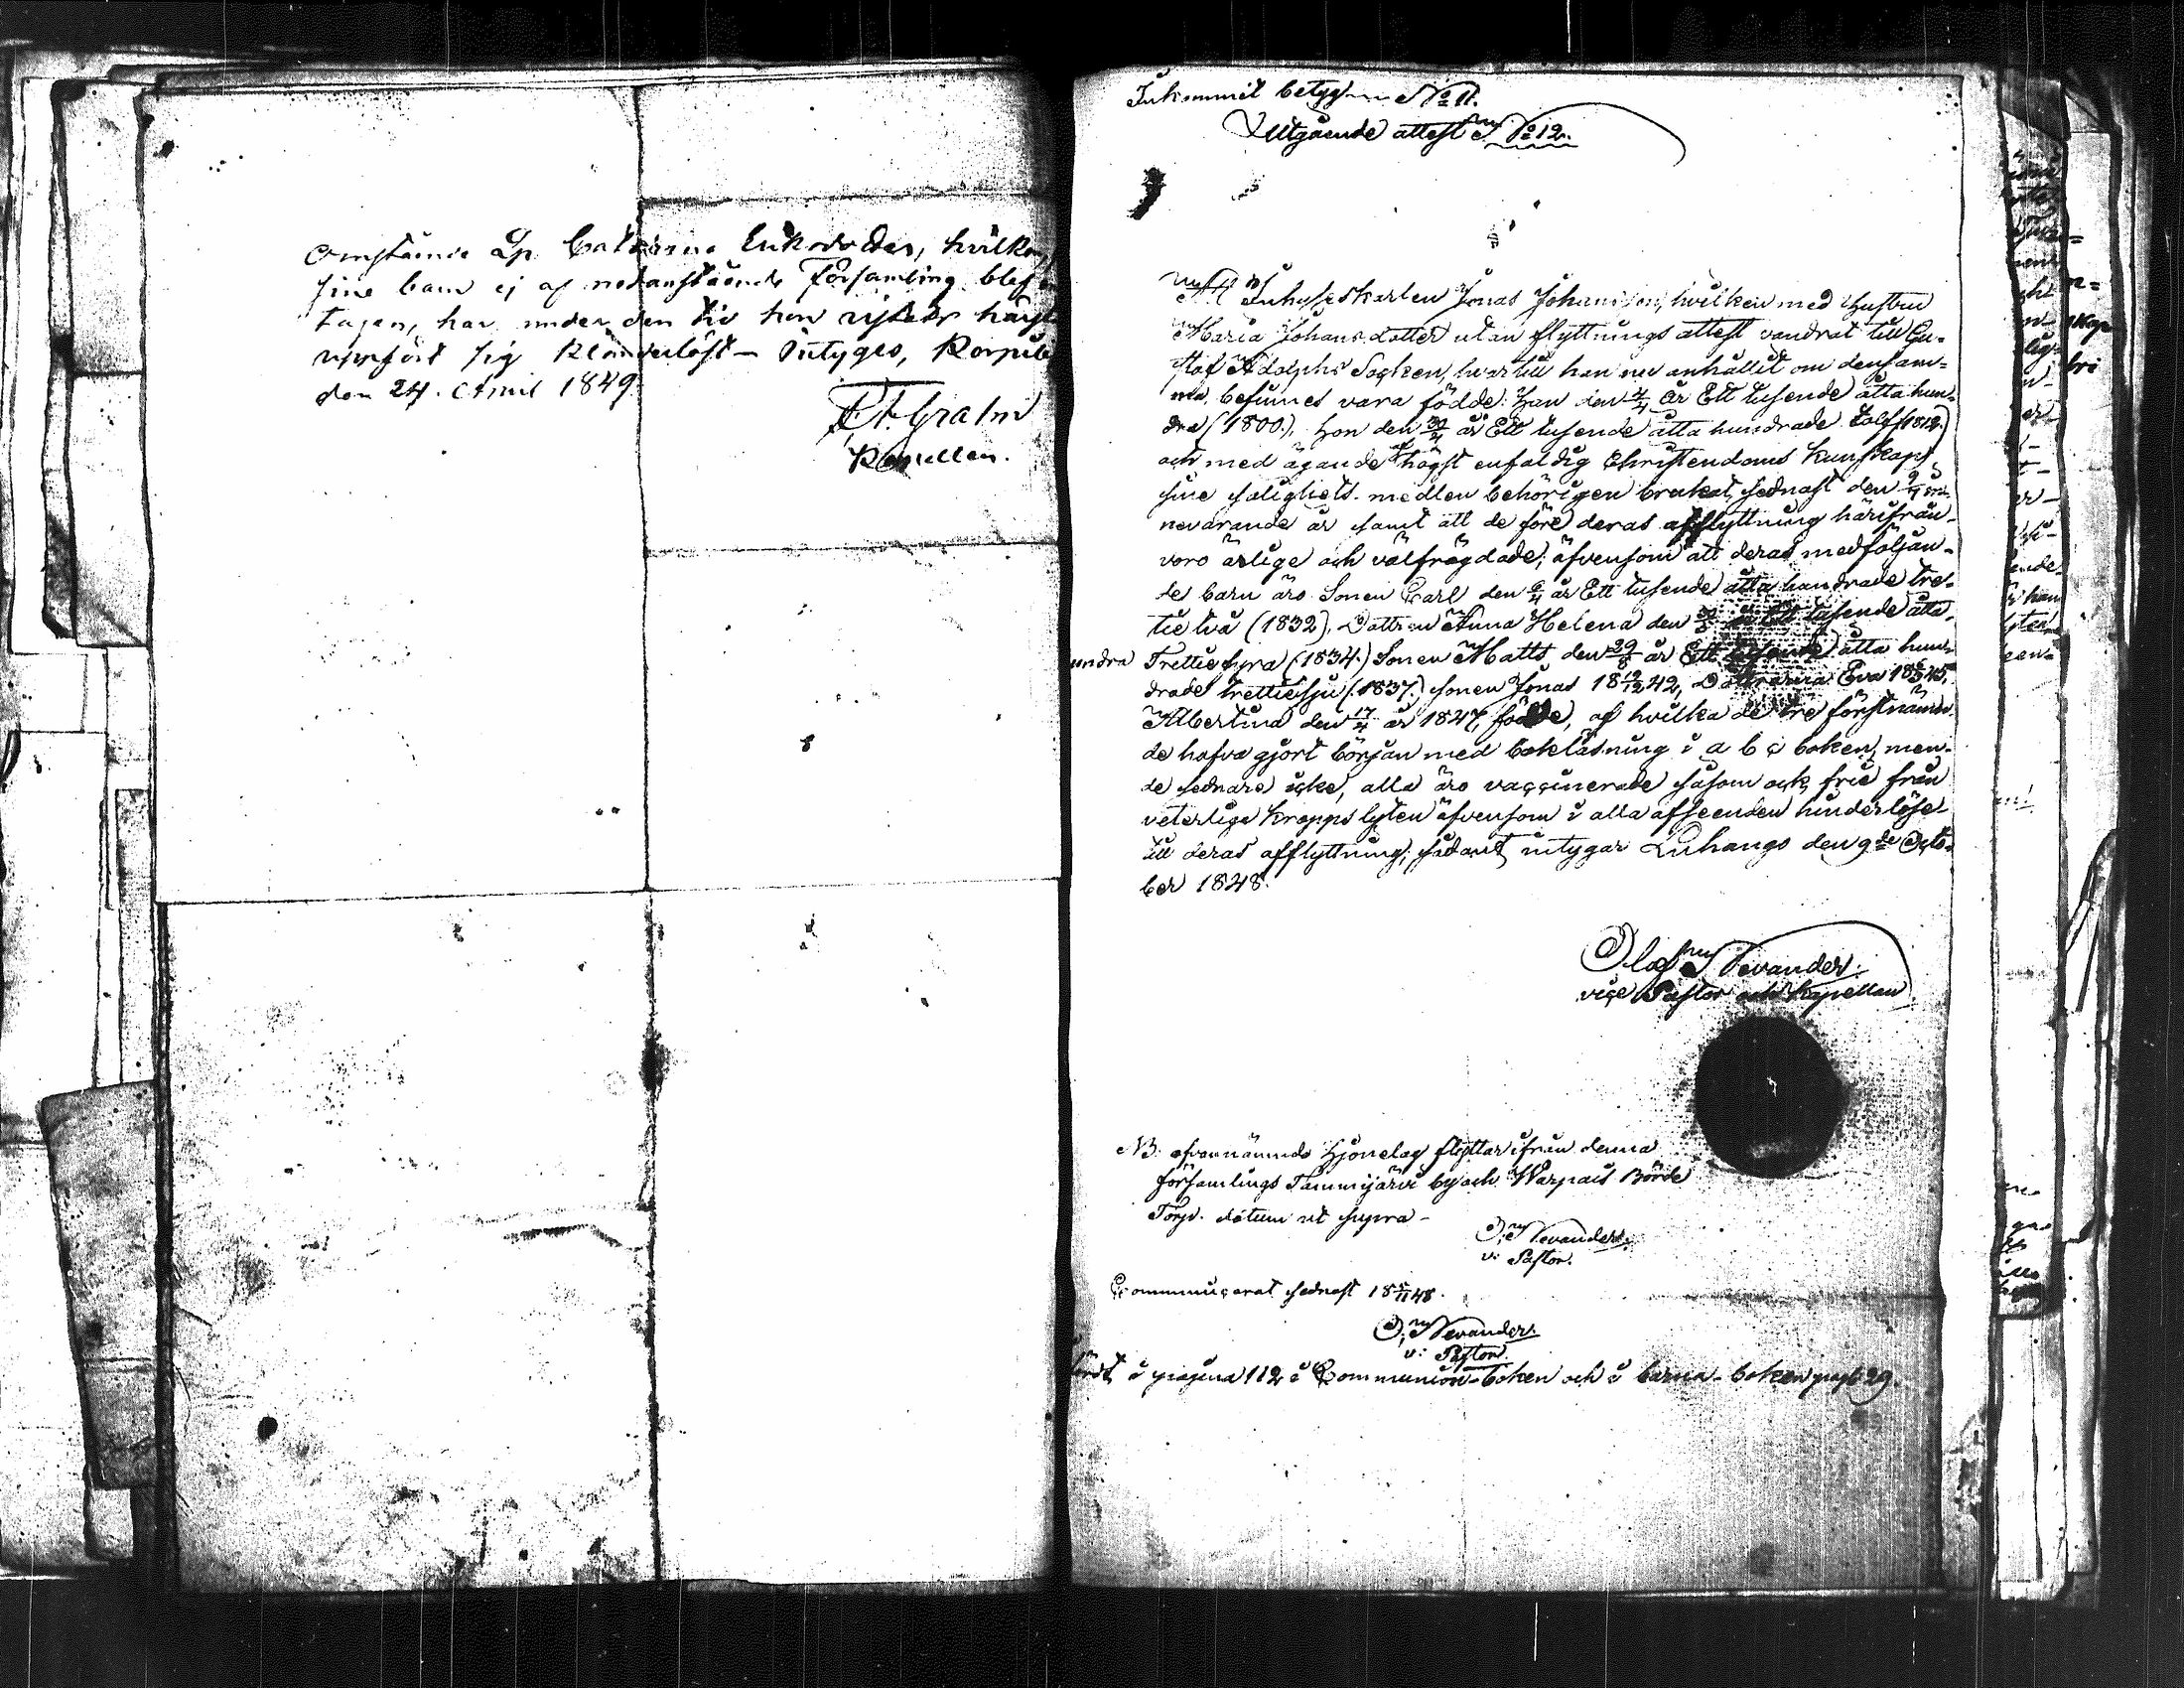 omstämnde Lp. Catarina Eriksdotter, hvilken
sine barn ej af nedanstående Församling blef
tagen, har under den tid hon vistats härst
uppfört sig klanderlöst – Intygas, Korpila
den 24. April 1849.
Grahn
Kapellan.
Inkommit betyg No 11.
Utgående attest No 12.
Att Inhyseskarlen Jonas Johansson, hvilken med hustrun
Maria Johansdotter utan flyttnings attest vandrat till Gu-
staf Adolphs Socken, hvartill han nu anhållit om densam-
ma, befinnes vara födde: han den år Ett tusende åtta hun-
dra (1800), hon den 30/4 år Ett tusende åtta hundrade tolf (1812)
och med ägande högst enfaldig Christendoms kunskap,
sine salighets medlen behörigen brukat, sednast den
nevarande år samt att de före deras afflyttning härifrån
voro ärlige och välfrägdade, äfvensom att deras medföljan-
de barn äro Sonen Carl den år Ett tusende åtta hundrade tret-
tie två (1832), Dottren Anna Helena den år Ett tusende åtta
undra Trettiefyra (1834.) Sonen Matts den 29/8 år Ett tusende åtta hun-
drade trettiesju (1837.) sonen Jonas 18 42, Döttrarna Eva 18 45,
Albertina den 17/4 år 1847, födde, af hvilka de tre förstnämn-
de hafva gjort början med bokläsning i a b c boken, men
de sednare icke, alla äro vaccinerade såsom ock frie från
veterlige kropps lyten äfvensom i alla afseenden hinderlöse
till deras afflyttning; sådant intygar Luhango den 9de Octo-
ber 1848.
Olof Nevander.
vice Pastor och Kapellan
NB. ofvannämnde Hjonelag flyttar ifrån denna
församlings Tammijärvi by och Warpais Börde
Torp. datum ut supra –
O. Nevander.
v: Pastor.
Communicerat sednast 18 48.
O. Nevander.
v: Pastor.
fördt å pagina 112 i Communion-boken och i barna-boken pag: 29.